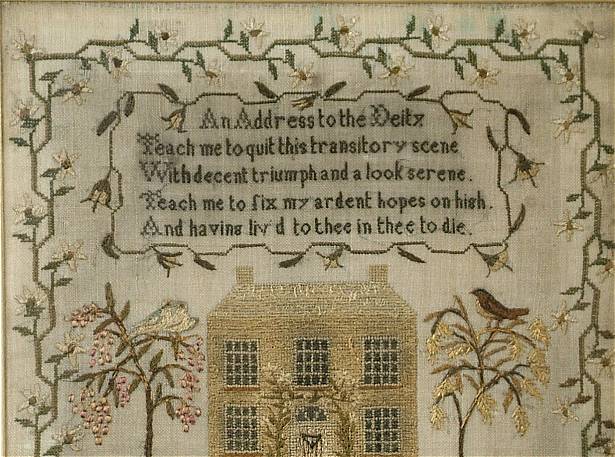 An Address to the Deity
Teach me to quit this transitory scene
With decent triumph and a look serene.
Teach me to fix my ardent hopes on high.
And having liv'd to thee in thee to die.